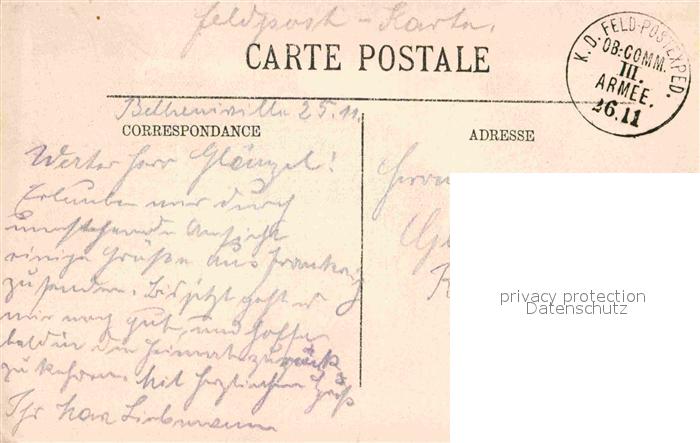 Feldpost-Karte.
CARTE POSTALE
K. D. FELD-POSTEXPED.
OB-COMM.
III.
ARMEE.
26.11
Betheniville 25.11.
CORRESPONDANCE
ADRESSE
Werter Herr Glänzel!
Erlaube mir durch
umstehende Ansicht
einige Grüße aus Frankreich
zu senden. Bis jetzt geht es
mir noch gut, und hoffe
bald in die Heimat zurück
zu kehren. Mit herzlichem Gruß
Ihr
Herrn
privacy protection
Datenschutz